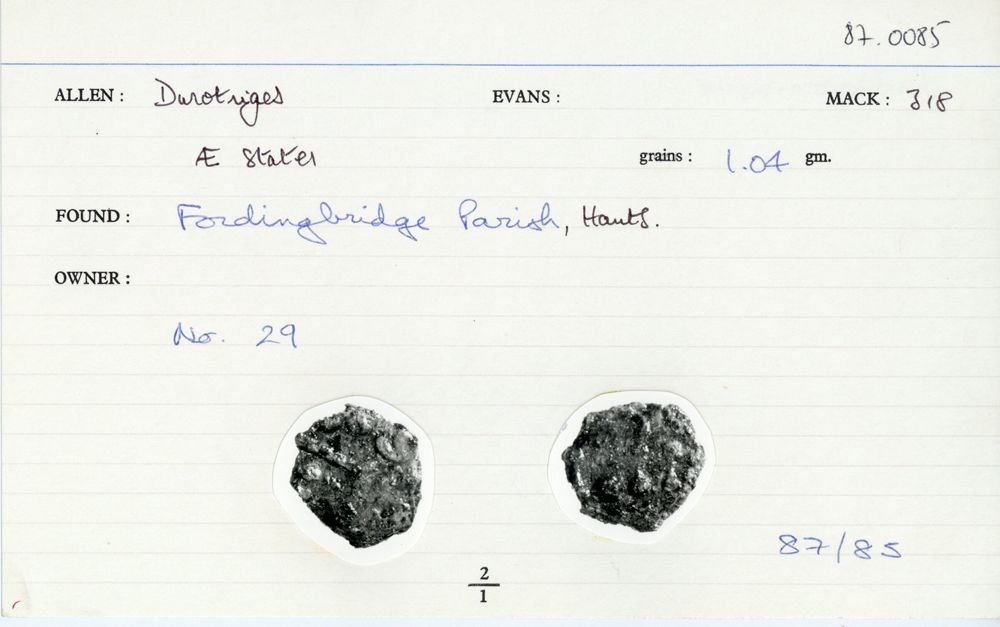 87.0085
ALLEN : Durotriges EVANS : MACK : 318
Æ Stater grains : 1.04 gm.
FOUND : Fordingbridge Parish, Hants.
OWNER :
No. 29
87/85
2
1